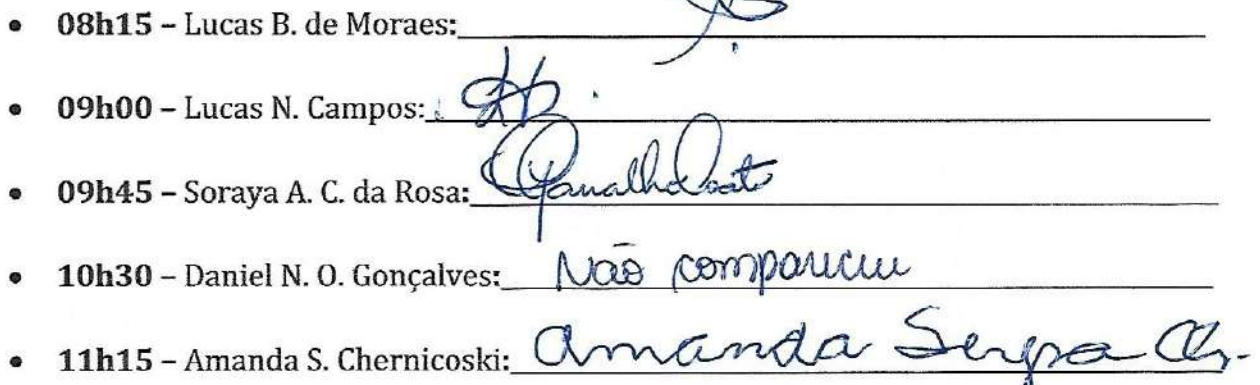 • 08h15 – Lucas B. de Moraes:
• 09h00 – Lucas N. Campos:
• 09h45 – Soraya A. C. da Rosa:
• 10h30 – Daniel N. O. Gonçalves: Não compareceu
• 11h15 – Amanda S. Chernicoski: Amanda Serpa Ch.